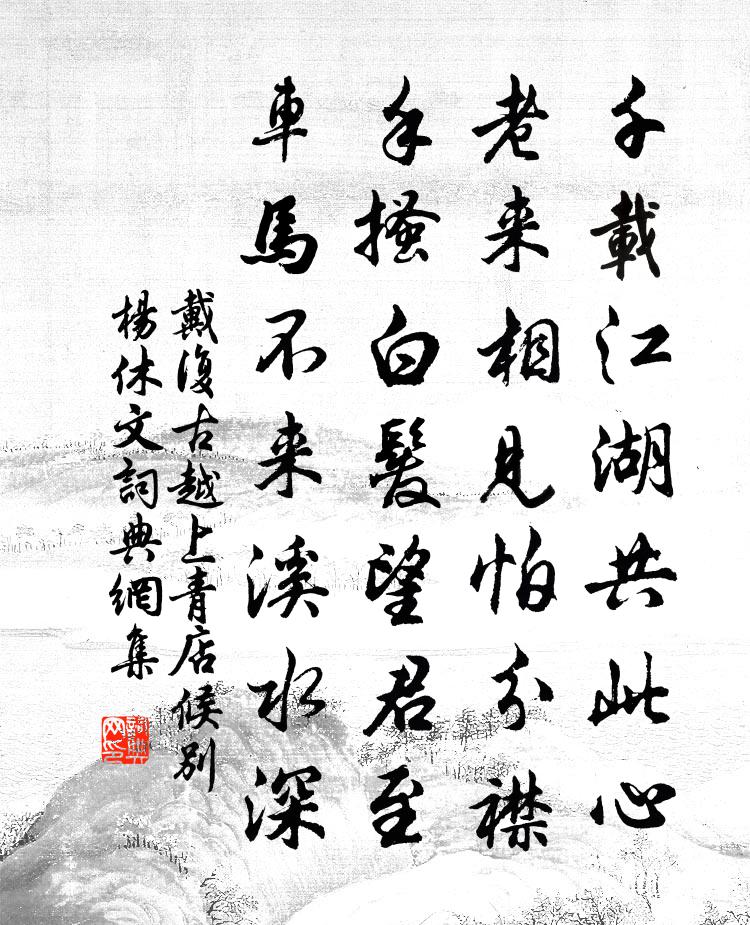 千載江湖共此心
老来相見怕分襟
手搔白髮望君至
車馬不来溪水深
戴復古越上青店候別
楊休文詞典網集
詞典網印